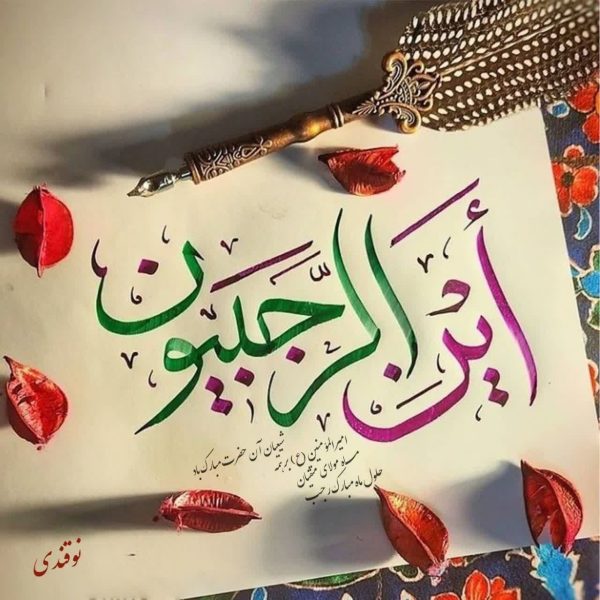 أين الرجبيون
حلول ماه مبارک رجب
ماه مولای متقیان
امیرالمؤمنین (ع) بر همه
شیعیان آن حضرت مبارک باد
نوقندی